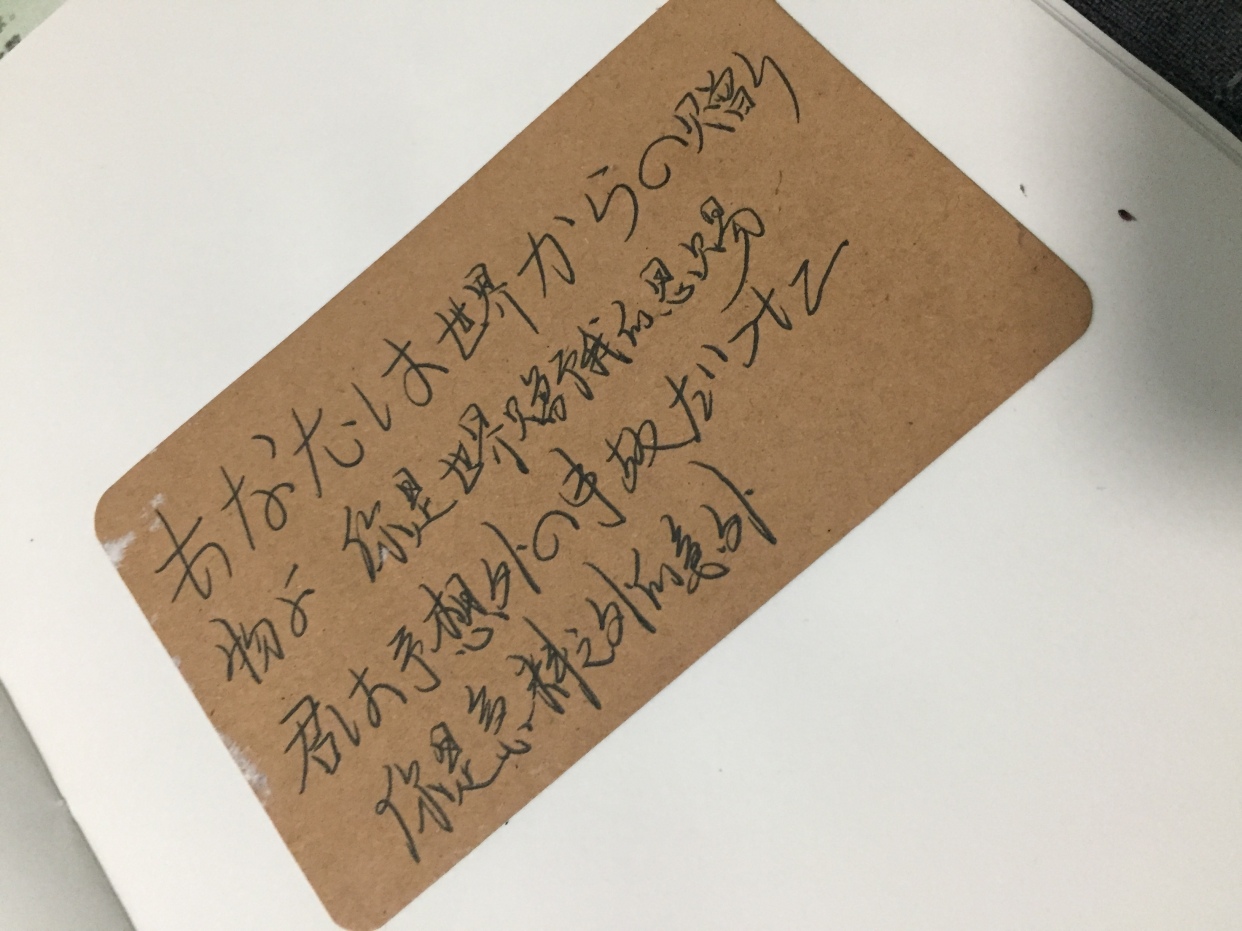 あなたは世界からの贈り
物よ 你是世界赠予我的恩赐
君は予想外の事故だけど
你是意料之外的意外